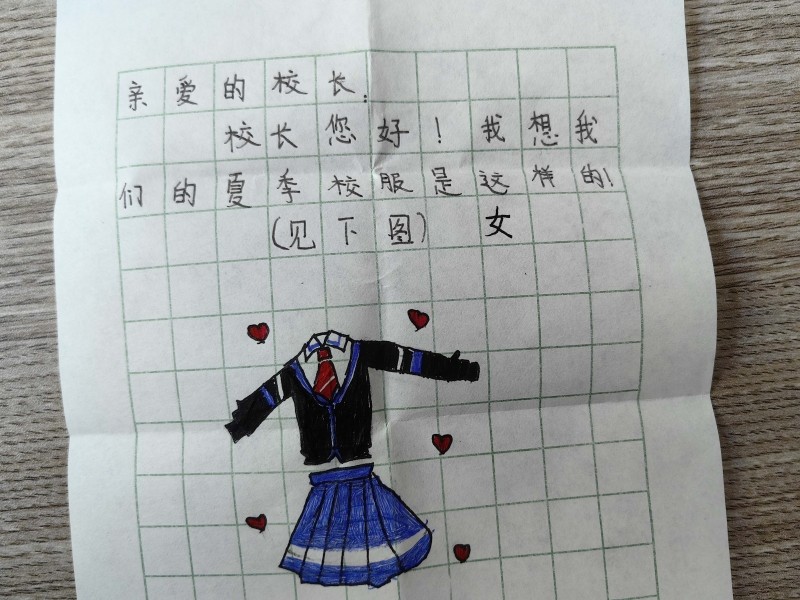 亲爱的校长：
校长您好！我想我
们的夏季校服是这样的！
（见下图） 女